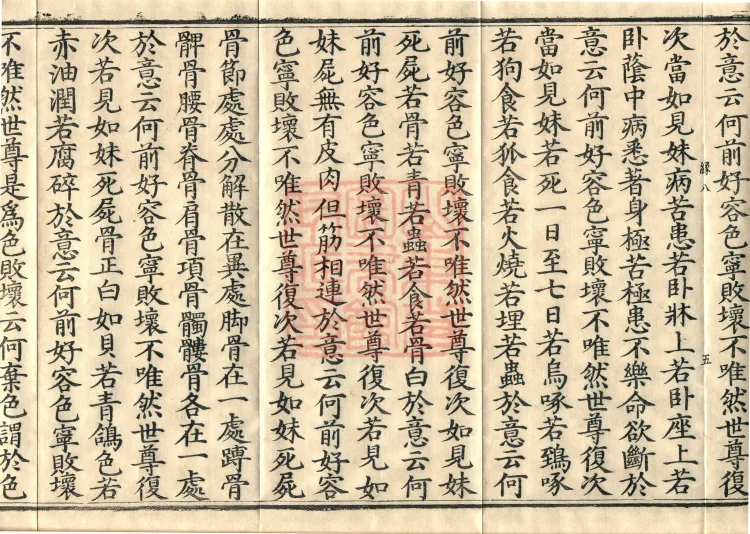 於意云何前好容色寧敗壞不唯然世尊復
次當如見妹病苦患若卧牀上若卧座上若
緣八 五
卧蔭中病悉著身極苦極患不樂命欲斷於
意云何前好容色寧敗壞不唯然世尊復次
當如見妹若死一日至七日若烏啄若鵄啄
若狗食若狐食若火燒若埋若蟲於意云何
前好容色寧敗壞不唯然世尊復次如見妹
死屍若骨若青若蟲若食若骨白於意云何
前好容色寧敗壞不唯然世尊復次若見如
妹屍無有皮肉但筋相連於意云何前好容
色寧敗壞不唯然世尊復次若見如妹死屍
骨節處處分解散在異處脚骨在一處蹲骨
髀骨腰骨脊骨肩骨項骨髑髏骨各在一處
於意云何前好容色寧敗壞不唯然世尊復
次若見如妹死屍骨正白如貝若青鴿色若
赤油潤若腐碎於意云何前好容色寧敗壞
不唯然世尊是爲色敗壞云何棄色謂於色